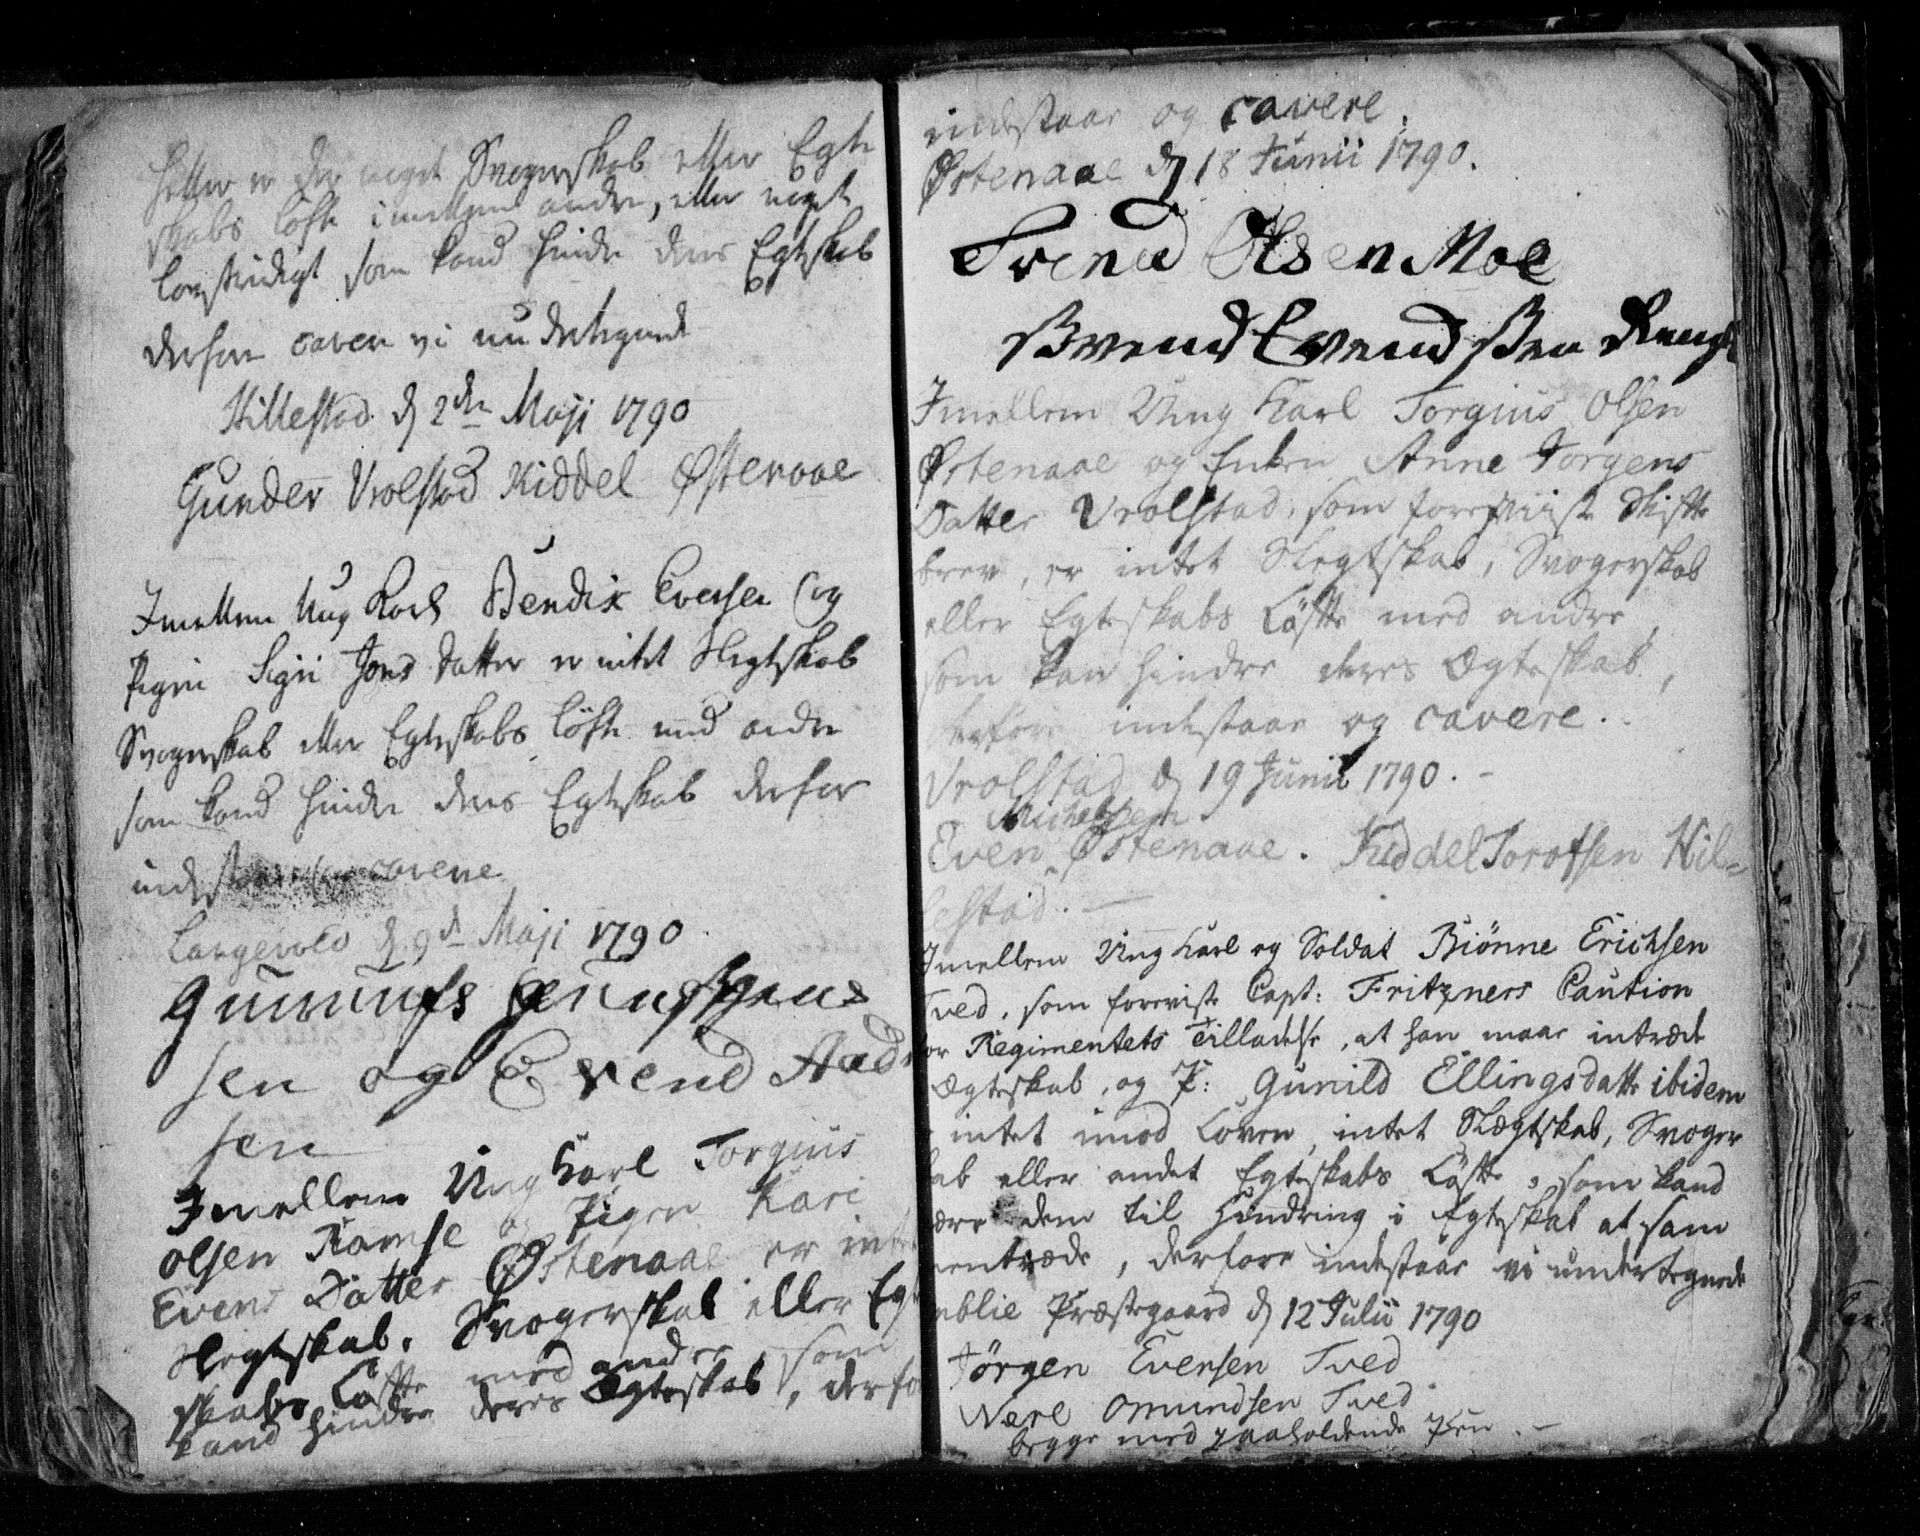 heller er der noget Svogerskab eller Egte
skabs löfte imellem andre, eller noget
lovstridigt som kand hindre deres Egteskab
derfore cavere vi undertegnede
Hillestad d 2den Maji 1790
Gunder Vrolstad Kiddel Østenaae
Imellem Ung Karl Bendix Evensen og
Pigen Sigri Jons Datter er intet Slegtskab
Svogerskab eller Egteskabs löfte med andre
som kand hindre deres Egteskab derfor
indestaar og cavere
d 9de Maji 1790
sen og Evend Aad
sen
Imellem Ung Karl Torgius
Olsen Ramse og Pigen Kari
Evens Datter Østenaae er intet
Slegtskab, Svogerskab eller Egte
skabs Löfte med andre, som
kand hindre deres Ægteskab, derfo
indestaar og cavere.
Østenaae d 18 Junii 1790.
Svend Olsen Moe
Svend Evendssen
Imellem Ung Karl Torgius Olsen
Østenaae og Enken Anne Jorgens
Datter Vrolstad, som foreviiste Skifte
brev, er intet Slegtskab, Svogerskab
eller Egteskabs Löfte med andre,
som kan hindre deres Ægteskab,
derfore indestaar og cavere.
Vrolstad d 19 Junii 1790. -
Michelsen
Even Østenaae. Kiddel Torofsen Hil=
lestad. -
Imellem Ung Karl og Soldat Biönne Erichsen
Tved, som foreviste Capt: Fritzners Caution
for Regimentets Tilladelse, at han maae intræde
Ægteskab, og P: Gunild Ellingsdatte ibidem
intet imod Loven, intet Slægtskab, Svoger
skab eller andet Egteskabs Löfte, som kand
være dem til Hindring i Egteskab at sam
mentræde, derfore indestaar vi undertegnede
Præstegaard d 12 Julii 1790
Jörgen Evensen Tved
Nere Omundsen Tved
begge med paaholdende Pen. -